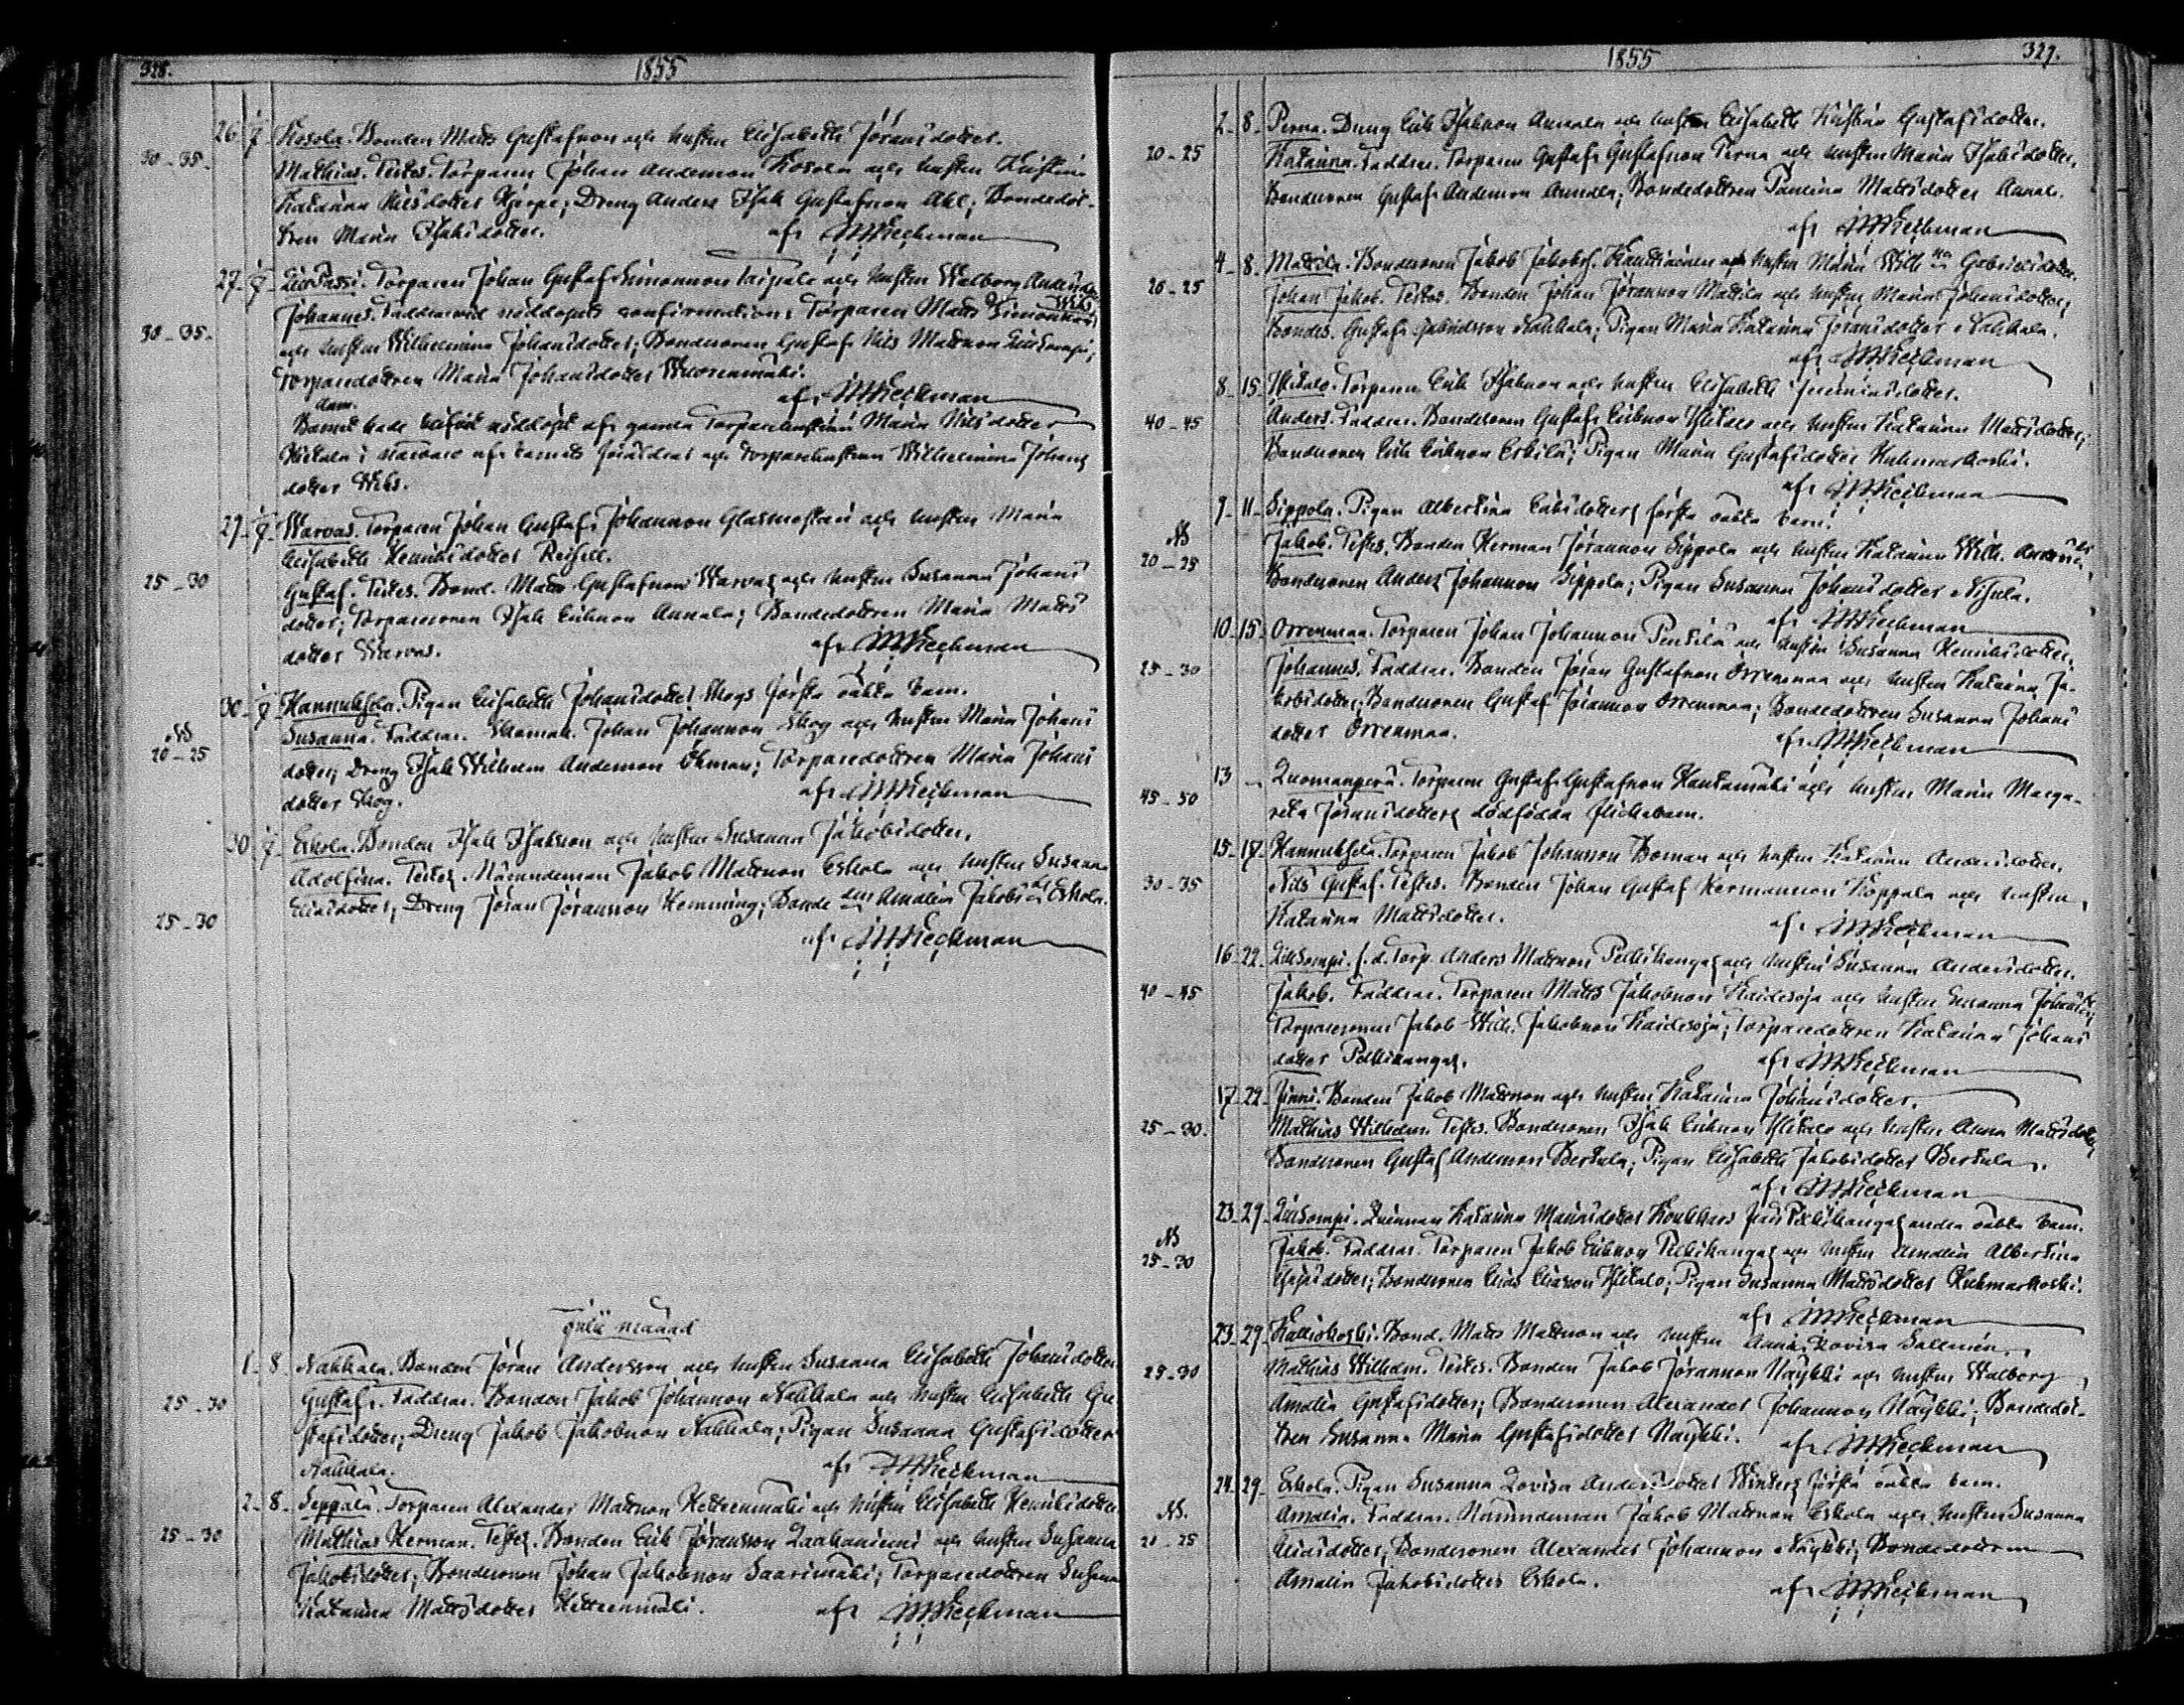 328.
1855
26 1/7 Kosola. Bonden Matts Gustafsson och hustru Elisabeth Jöransdotter.
30-35. Mathias. Testes. Torparen Johan Andersson Kosola och hustru Kristina
Katarina Nilsdotter; Dreng Anders Isak Gustafsson; Bondedot-
tren Maria Isaksdotter. af JMKeckman
27. 1/7. Torparen Johan Gustaf Simonsson Taipale och hustru Walborg Andersdr
Johannes. Faddrar vid nöddopets confirmation: Torparen Matts Simonsson
30-35. och hustru Wilhelmina Johansdotter; Bondesonen Gustaf Nils Mattsson
Torparedottren Maria Johansdotter Wuorenmäki.
af JMKeckman
Barnet hade blifvit nöddöpt af gamla Torparehustrun Maria Nilsdotter
i närvaro af barnets föräldrar och torparehustrun Wilhelmina Johans
dotter
29. 1/7. Warvas. Torparen Johan Gustaf Johansson Glasmästari och hustru Maria
Elisabeth Henriksdotter
25-30 Gustaf. Testes. Bond. Matts Gustafsson Warvas och hustru Susanna Johans
dotter; Torparesonen Isak Eriksson Annala; Bondedottren Maria Matts
dotter Warvas. af JMKeckman
30. 1/7. Hannuksela. Pigan Elisabeth Johansdotter Skogs första oäkta barn.
NB Susanna. Faddrar. Skomak. Johan Johansson Skog och hustru Maria Johans
20-25 dotter; Dreng Isak Wilhelm Andersson Öhman; Torparedottren Maria Johans
dotter Skog. af JMKeckman
30 1/7. Eskola. Bonden Isak Isaksson och hustru Susanna Jakobsdotter.
Adolfina. Testes. Nämndeman Jakob Mattsson Eskola och hustru Susanna
25-30 Eliasdotter; Dreng Jöran Jöransson Hemming; Bonde dttr Amalia Jakobsdr Eskola.
af JMKeckman
Julii månad
1.8. Nahkala. Bonden Jöran Andersson och hustru Susanna Elisabeth Johansdotter
25-30 Gustaf. Faddrar. Bonden Jakob Johansson Nahkala och hustru Elisabeth Gu
stafsdotter; Dreng Jakob Jakobsson Nahkala; Pigan Susanna Gustafsdotter
Nahkala. af JMKeckman
2.8. Seppälä. Torparen Alexander Mattsson Hetteenmäki och hustru Elisabeth Henriksdotter
25-30 Mathias Herman. Testes. Bonden Erik Jöransson Laakaniemi och hustru Susanna
Jakobsdotter; Bondesonen Johan Jakobsson Saarimäki; Torparedottren Susanna
Katarina Mattsdotter Hetteenmäki. af JMKeckman
1855
327.
2.8. Perna. Dreng Erik Isaksson Annala och hustru Elisabeth Kristina Gustafsdotter.
20-25 Katarina. Faddrar. Torparen Gustaf Gustafsson Perna och hustru Maria Isaksdotter,
Bondesonen Gustaf Andersson Annala; Bondedottren Paulina Mattsdotter Annala.
af JMKeckman
4.8. Mattila. Bondesonen Jakob Jakobss. Kauttiainen och hustru Maria Wilh:na Gabrielsdotter.
20-25 Johan Jakob. Testes. Bonden Johan Jöransson Mattila och hustru Maria Johansdotter;
Bondes. Gustaf Gabrielsson Nahkala; Pigan Maria Katarina Jöransdotter Nahkala.
af JMKeckman
8.15. Ylitalo. Torparen Erik Isaksson och hustru Elisabeth Jeremiasdotter.
40-45 Anders. Faddrar. Bondesonen Gustaf Eriksson Ylitalo och hustru Katarina Mattsdotter;
Bondesonen Erik Eriksson Erkilä; Pigan Maria Gustafsdotter Kuhmarkoski.
af JMKeckman
9.11. Sippola. Pigan Albertina Eriksdotters första oäkta barn.
NB Jakob. Testes. Bonden Herman Jöransson Sippola och hustru Katarina Wilh. Andersdr
20-25 Bondesonen Anders Johansson Sippola; Pigan Susanna Johansdotter Nisula.
af JMKeckman
10.15. Orrenmaa. Torparen Johan Johansson Penttilä och hustru Susanna Henriksdotter.
25-30 Johannes. Faddrar. Bonden Jöran Gustafsson Orrenmaa och hustru Katarina Ja-
kobsdotter; Bondesonen Gustaf Jöransson Orrenmaa; Bondedottren Susanna Johans
dotter Orrenmaa. af JMKeckman
13 Luomanperä. Torparen Gustaf Gustafsson Hautamäki och hustru Maria Marga-
45-50 reta Jöransdotters dödfödda flickebarn.
15.17. Hannuksela. Torparen Jakob Johansson Boman och hustru Katarina Andersdotter.
30-35 Nils Gustaf. Testes. Bonden Johan Gustaf Hermansson Koppala och hustru
Katarina Mattsdotter. af JMKeckman
16.22. f.d. Torp. Anders Mattsson Pelkikangas och hustru Susanna Andersdotter.
40-45 Jakob. Faddrar. Torparen Matts Jakobsson Kaidesoja och hustru Susanna Johansdr;
Torparesonen Jakob Wilh. Jakobsson Kaidesoja; Torparedottren Katarina Johans
dotter Pelkikangas. af JMKeckman
17.22. Jinni. Bonden Jakob Mattsson och hustru Katarina Johansdotter.
25-30. Mathias Wilhelm. Testes. Bondesonen Isak Eriksson Ylitalo och hustru Anna Mattsdotter
Bondesonen Gustaf Andersson Pertula; Pigan Elisabeth Jakobsdotter Pertula.
af JMKeckman
23.29. Qvinnan Katarina Mariasdotter Koukkars från Pelkikangas andra oäkta barn.
NB Jakob. Faddrar. Torparen Jakob Eriksson Pelkikangas och hustru Amalia Albertina
25-30 Eliasdotter; Bondesonen Elias Eliasson Ylitalo; Pigan Susanna Mattsdotter Kuhmarkoski.
af JMKeckman
23.29. Kalliokoski. Bond. Matts Mattsson och hustru Anna Lovisa Sallmén.
25-30 Mathias Wilhelm. Testes. Bonden Jakob Jöransson Näykki och hustru Walborg
Amalia Gustafsdotter; Bondesonen Alexander Johansson Näykki; Bondedot-
tren Susanna Maria Gustafsdotter Näykki. af JMKeckman
24.29. Eskola. Pigan Susanna Lovisa Andersdotter Winters första oäkta barn.
NB. Amalia. Faddrar. Nämndeman Jakob Mattsson Eskola och hustru Susanna
20-25 Eliasdotter; Bondesonen Alexander Johansson Näykki; Bondedottren
Amalia Jakobsdotter Eskola. af JMKeckman